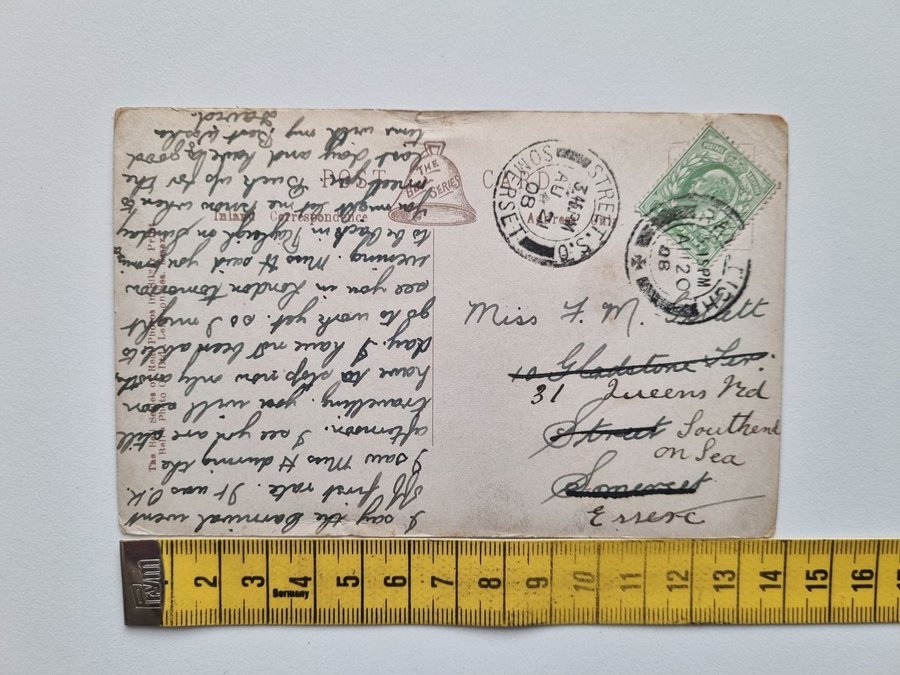 POST CARD
THE
BELL
SERIES
Inland Correspondence
STREET.S.O.
AU 21
08
SOMERSET
PM
AU 20
08
Miss F. M.
10 Gladstone Ter.
31 Queens Rd
Street Southend
on Sea
Somerset
Essex
I say the Carnival went
off first rate. It was O.K.
I saw Miss H during the
afternoon. I see you are still
travelling. you will soon
have to stop now only another
day. I have not been able to
go to work yet. so I might
see you in London tomorrow
evening. Miss H said you
to be back in Rayleigh on Sunday
you might let me know when to
meet you. Buck up for the
last day and have a good
time with my Best Wishes
The Bell Series of Real Photos in Silver Print
Photo Co Ltd Leigh-on-Sea, Essex
1 2 3 4 5 6 7 8 9 10 11 12 13 14 15 16
Germany